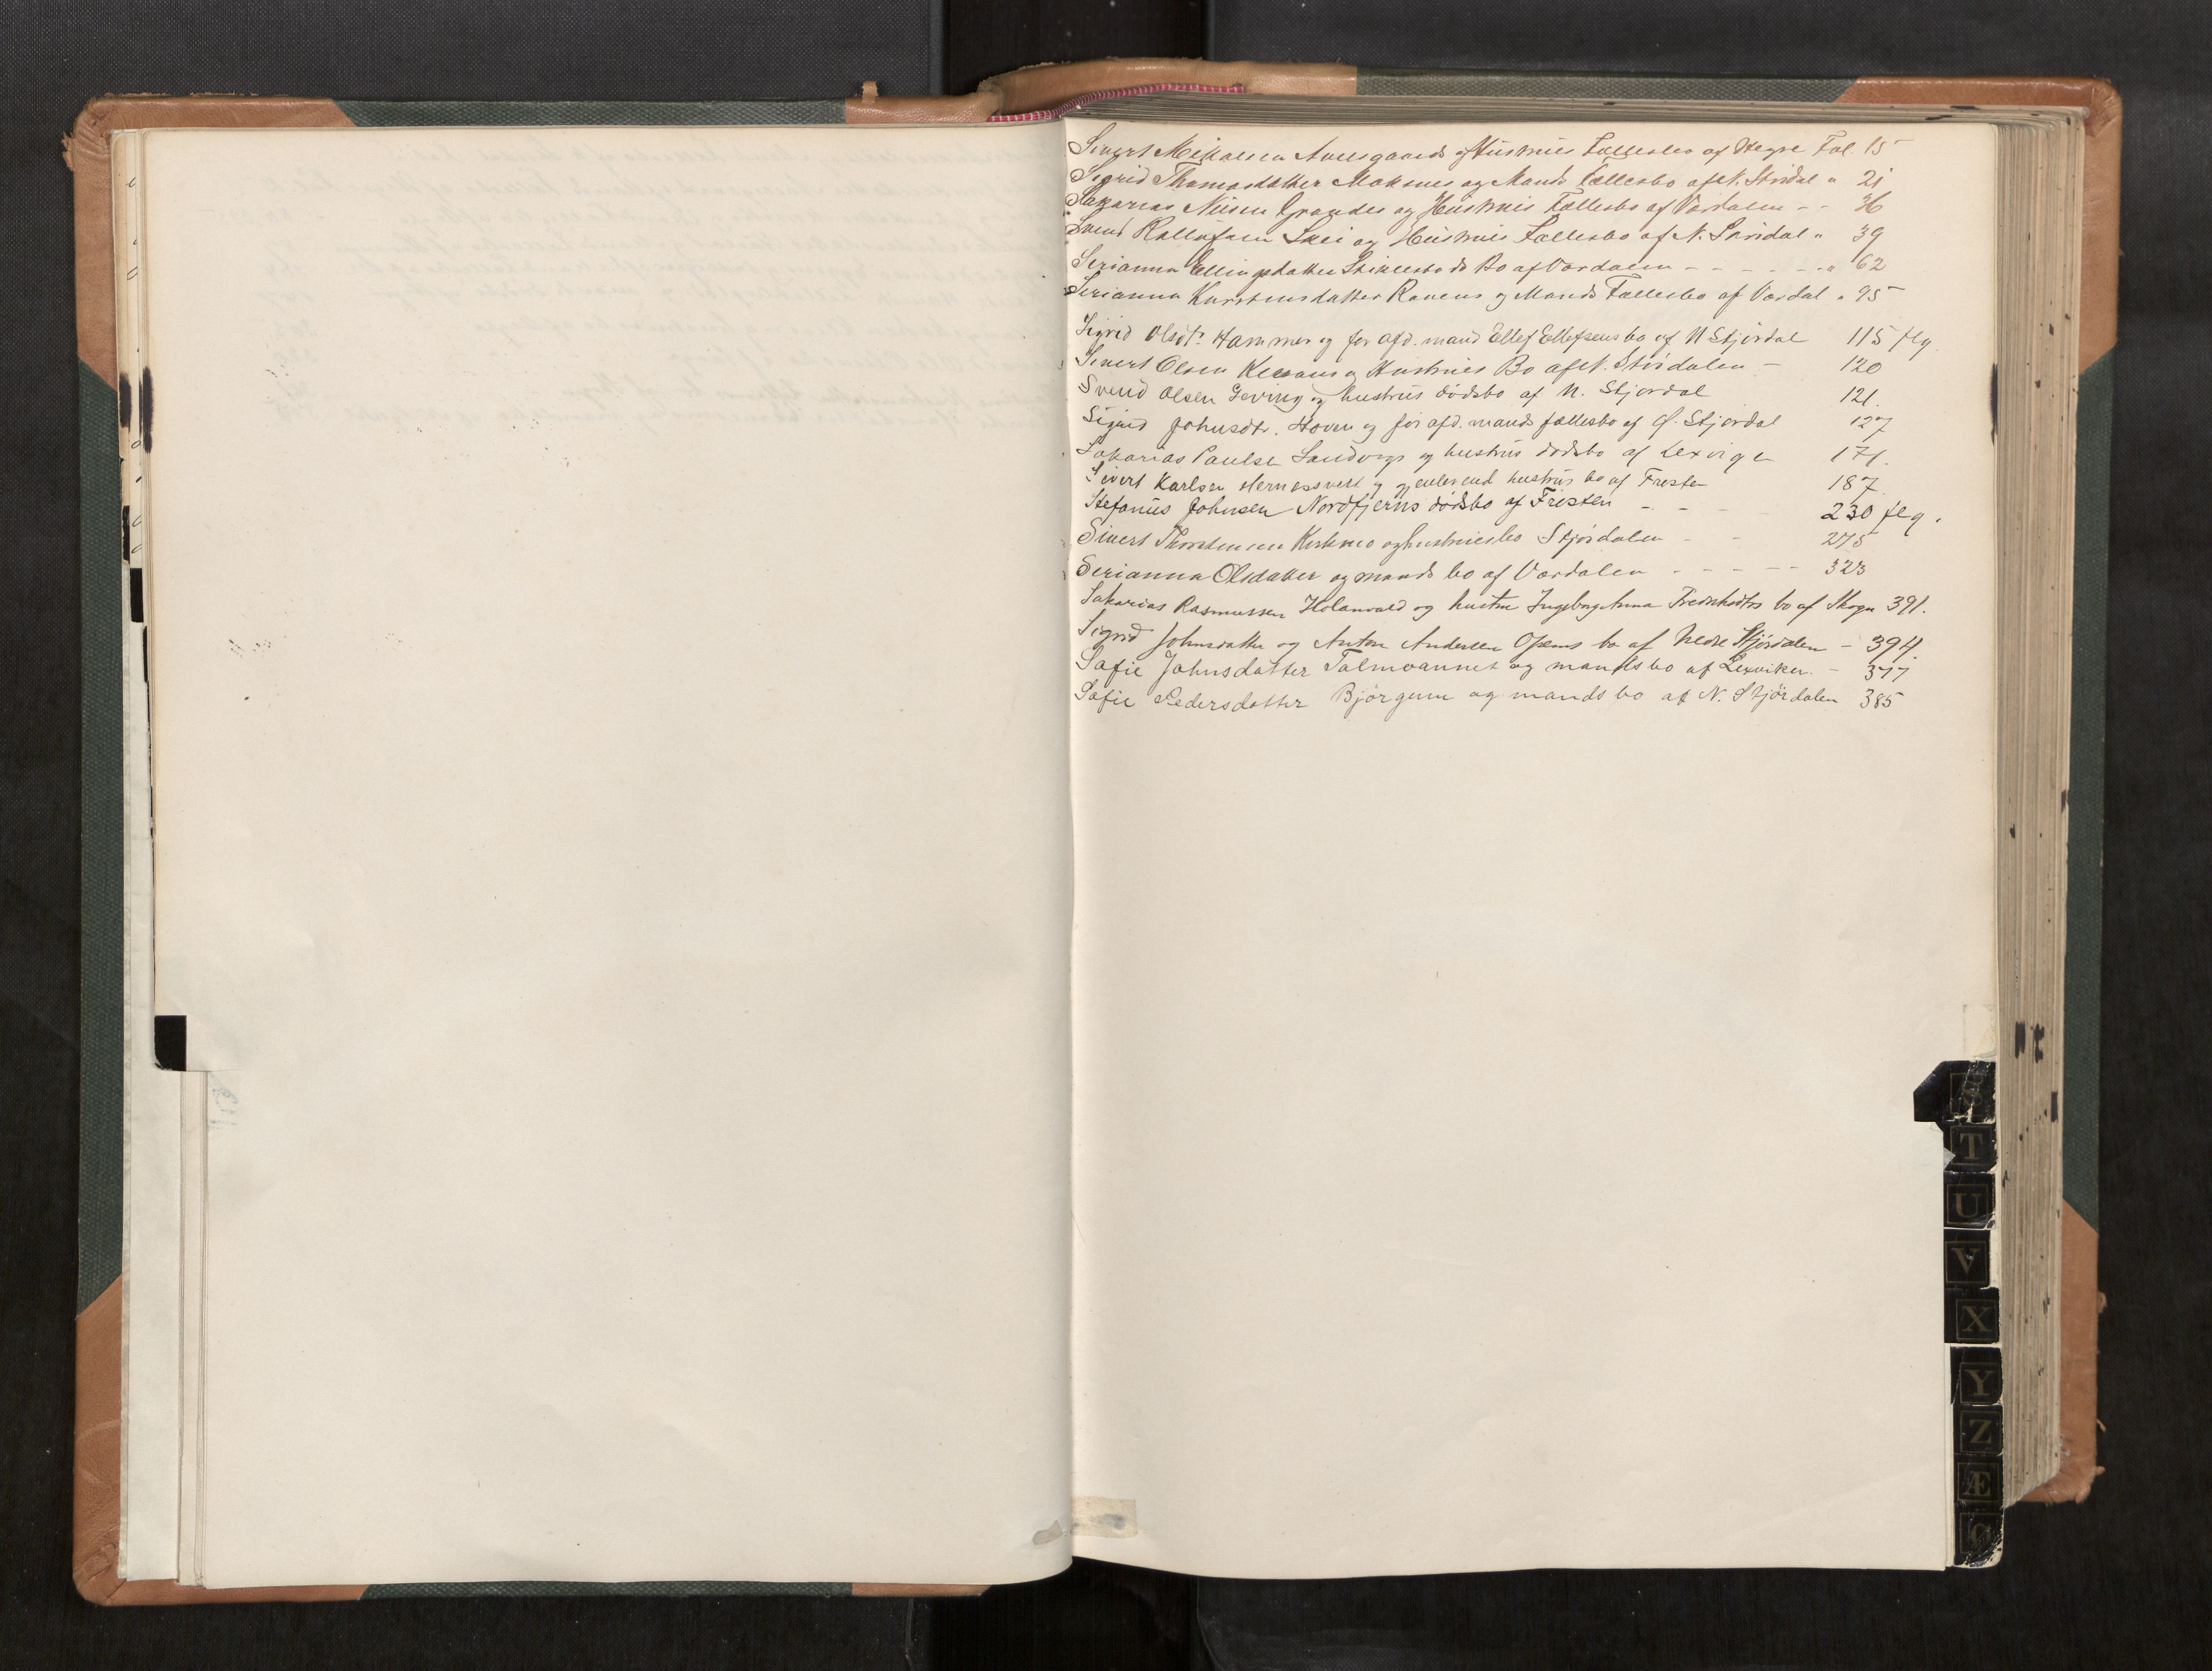 Sivert Mikalsen Avelsgaards og Hustrues Fællesbo af Hegre Fol. 15
Sigrid Thomasdatter Moksnes og Mands Fællesbo af N. Strdal " 21
Sakarias Nilsen Grandes og Hustrues Fællesbo af Værdalen - - 36
Svend Rollafsen Skei og Hustrues Fællesbo af N. Strdal " 39
Serianna Ellingsdatter Stiklestads Bo af Værdalen - - - - - " 62
Serianna Karstensdatter og Mands Fællesbo af Værdal " 95
Sigrid Olsdtr. Hammer og før afd. mand Ellef Ellefsens bo af N Stjørdal 115 flg.
Sivert Olsen og Hustrues Bo af N. Stjrdalen - 120
Svend Olsen Geving og hustrus dødsbo af N. Stjørdal 121.
Sigrid Johnsdtr. Hoven og før afd. mands fællesbo af Ø. Stjørdal 127
Sakarias Paulsen Sandvigs og hustrus dødsbo af Lexvigen 171.
Sivert Karlsen og gjenlevend hustrus bo af Frosten 187.
Stefanus Johnsen Nordfjerns dødsbo af Frosten - - - 230 flg.
Sivert Thorstensen Kirkmo og hustrues bo Stjørdalen - - 275
Serianna Olsdatter og mands bo af Værdalen - - - - - 323
Sakarias Rasmussen Holanvald og hustru Ingeborg Anna bo af Skogn 391.
Sigrid Johnsdatter og Anton Andersen Opems bo af Nedre Stjørdalen - 394.
Sofie Johnsdatter Talmoannet og mands bo af Lexviken. - 377
Sofie Pedersdatter Bjørgum og mands bo af N. Stjørdalen 385
S
T
U
V
X
Y
Z
Æ
Ø